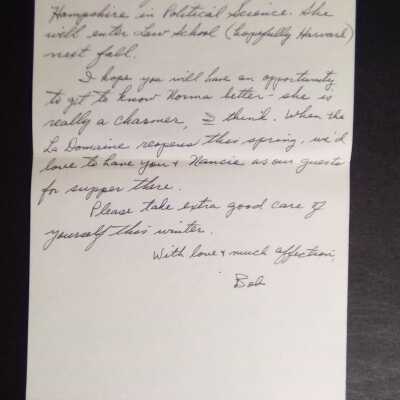 Hampshire in Political Science. She
will enter Law School (hopefully Harvard)
next fall.
I hope you will have an opportunity
to get to know Norma better - she is
really a charmer, I think. When the
La Domaine reopens this spring, we'd
love to have you & Nancie as our guests
for supper there.
Please take extra good care of
yourself this winter.
With love & much affection,
Bob